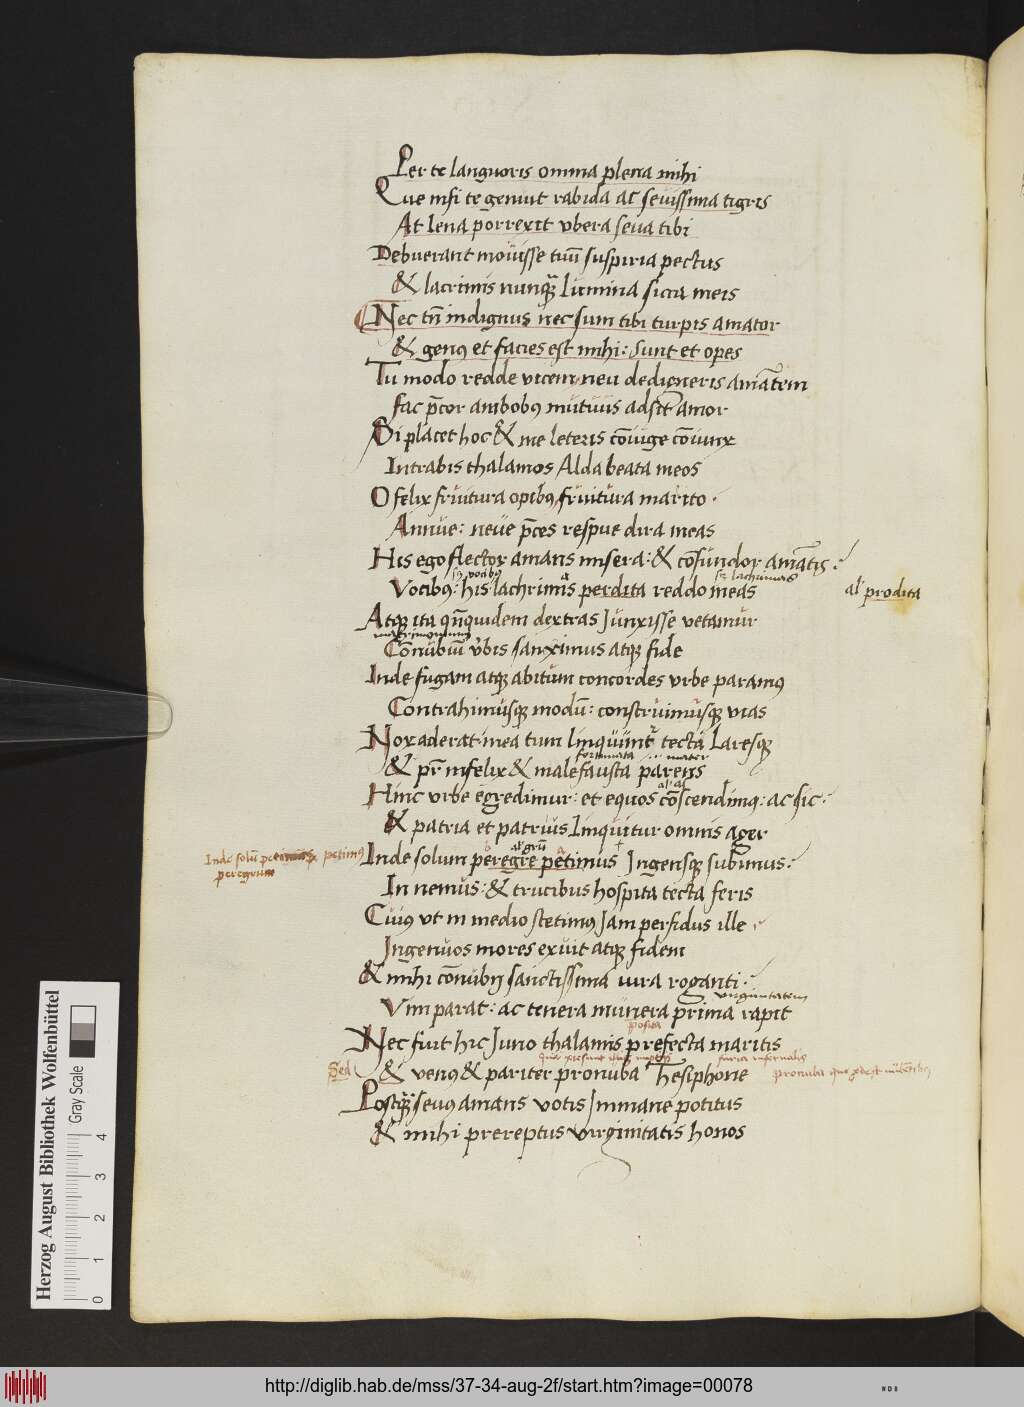 Per te languoris omnia plena mihi
Que nisi te genuit rabida ac seuissima tigris
At lena porrexit vbera seua tibi
Debuerant mouisse tuũ suspiria pectus
& lacrimis nunq̃ lumina sicca meis
Nec tñ indignus nec sum tibi turpis amator
& genus et facies est mihi: sunt et opes
Tu modo redde vicem, neu dedigneris amãtem
fac p̃cor ambobus mutuus adsit amor
Si placet hoc & me leteris cõiuge cõiunx
Intrabis thalamos Alda beata meos
O felix fruitura opibus, fruitura marito.
Annue: neue p̃ces respue dira meas
His ego flector amans misera: & cõfundor amãtis:
sz vocibus sz lachrimas
Vocibus: his lachrimis perdita reddo meas
al' prodita
Atq ita qñquidem dextras Junxisse vetamur
matrimonium
Cõnubiũ vbis sanximus atq fide
Inde fugam atq abitum concordes vrbe paramus
Contrahimusq modũ: construimusq vias
Nox aderat: mea tum linquuntr tecta Laresq
fortunata mater
& pr̃ infelix & malefausta parens
al' as
Hinc vrbe egredimur: et equos cõscendimus: ac sic:
& patria et patrius linquitur omnis ager
Inde solũ petimus petimus
peregrum
al' grũ
Inde solum peregre petimus Ingensq subimus:
In nemus: & trucibus hospita tecta feris
Cuius vt in medio stetimus Jam perfidus ille
Ingenuos mores exuit atq fidem
& mihi cõnubij sanctissima iura roganti:
virginitatem
Vim parat: ac tenera munera prima rapit
posita
Nec fuit hic Juno thalamis prefecta maritis
furia infernalis
Sed
& venus & pariter pronuba Thesiphone
pronuba que
Postq̃ seuus amans votis Immane potitus
& mihi prereptus virginitatis honos
Herzog August Bibliothek Wolfenbüttel
Gray Scale
0 1 2 3 4
http://diglib.hab.de/mss/37-34-aug-2f/start.htm?image=00078